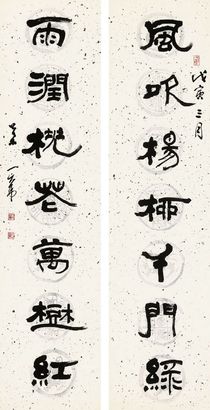 風吹楊柳千門綠
戊寅三月
雨潤桃花萬樹紅